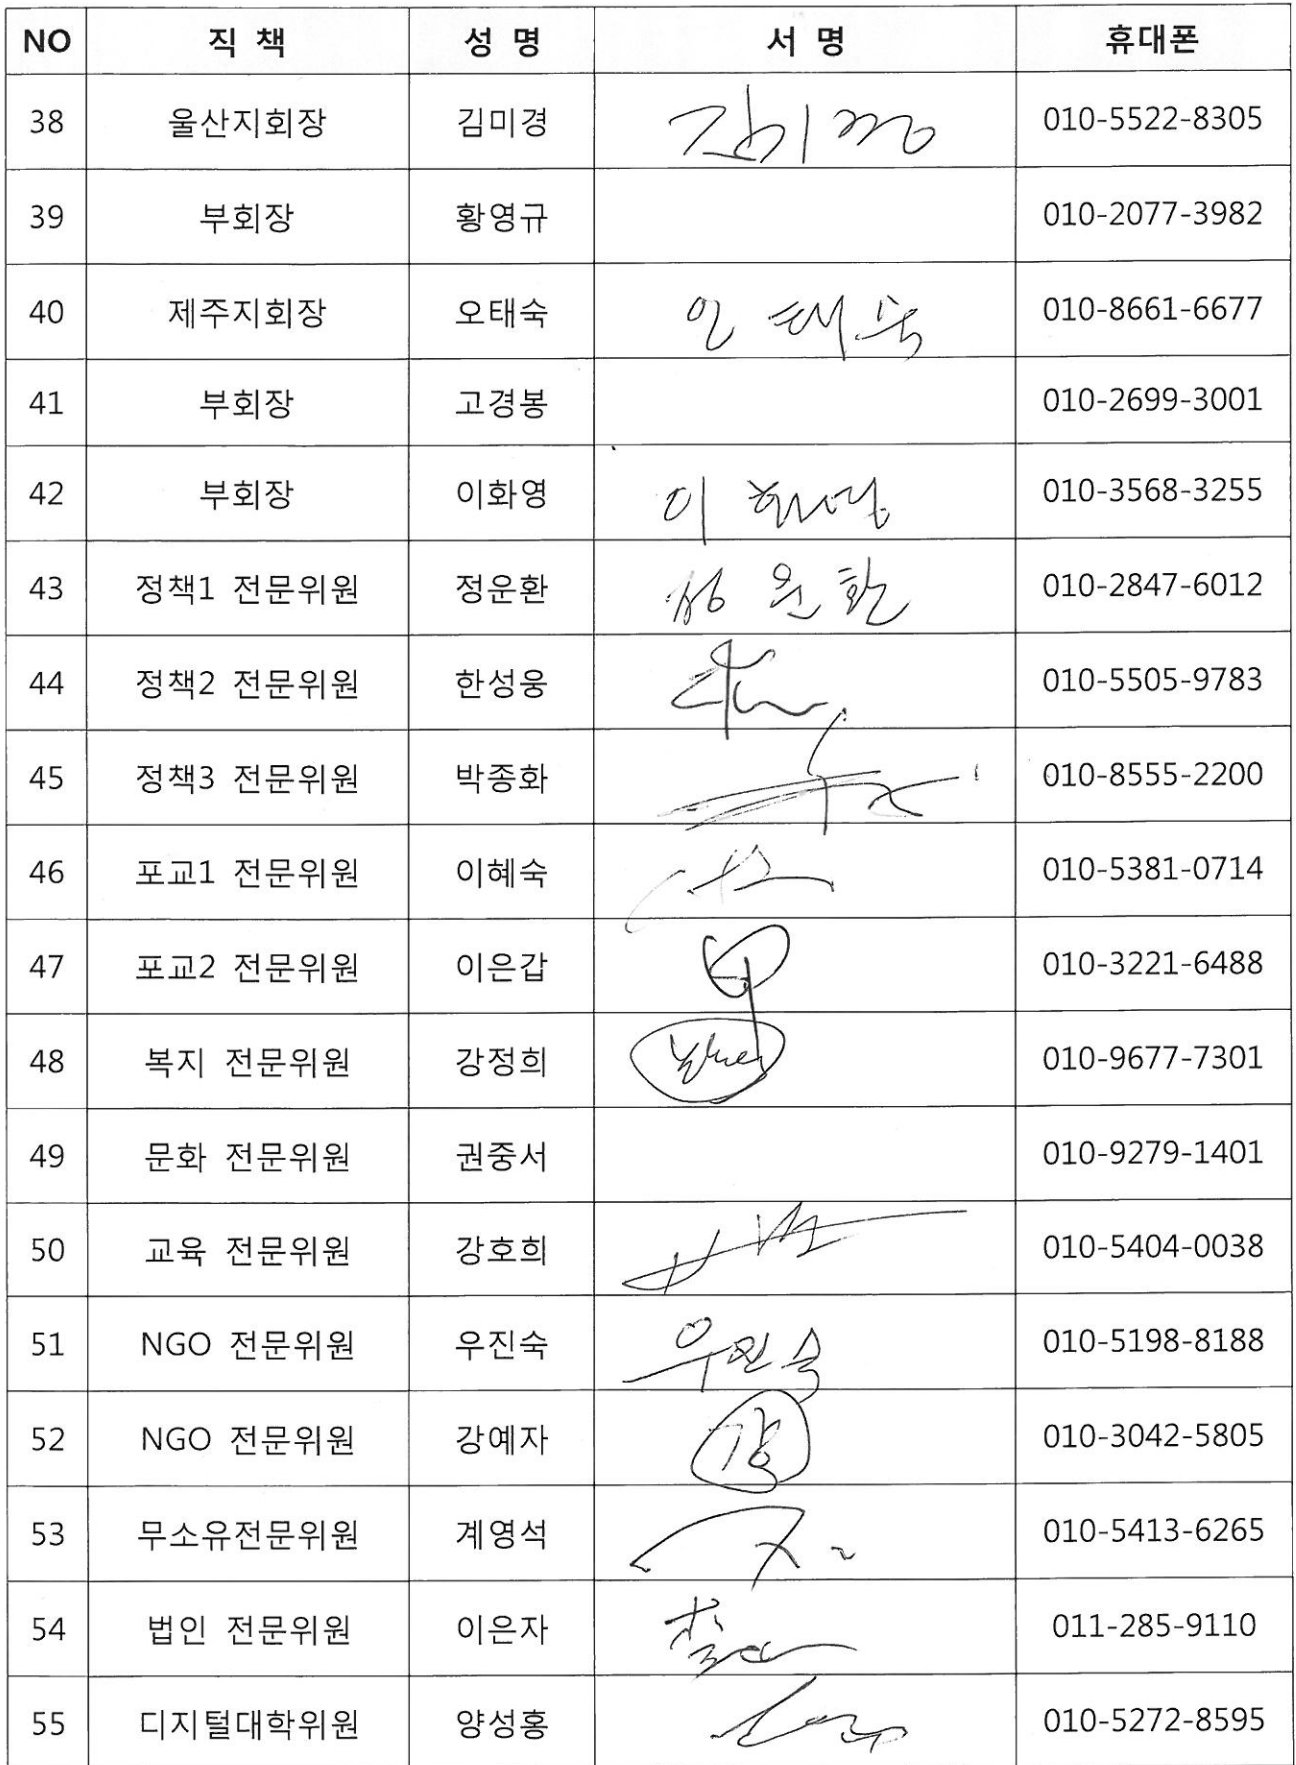 NO 직 책 성 명 서 명 휴대폰
38 울산지회장 김미경 김미경 010-5522-8305
39 부회장 황영규 010-2077-3982
40 제주지회장 오태숙 오태숙 010-8661-6677
41 부회장 고경봉 010-2699-3001
42 부회장 이화영 이화영 010-3568-3255
43 정책1 전문위원 정운환 010-2847-6012
44 정책2 전문위원 한성웅 010-5505-9783
45 정책3 전문위원 박종화 010-8555-2200
46 포교1 전문위원 이혜숙 010-5381-0714
47 포교2 전문위원 이은갑 010-3221-6488
48 복지 전문위원 강정희 010-9677-7301
49 문화 전문위원 권중서 010-9279-1401
50 교육 전문위원 강호희 010-5404-0038
51 NGO 전문위원 우진숙 010-5198-8188
52 NGO 전문위원 강예자 강 010-3042-5805
53 무소유전문위원 계영석 010-5413-6265
54 법인 전문위원 이은자 011-285-9110
55 디지털대학위원 양성홍 010-5272-8595